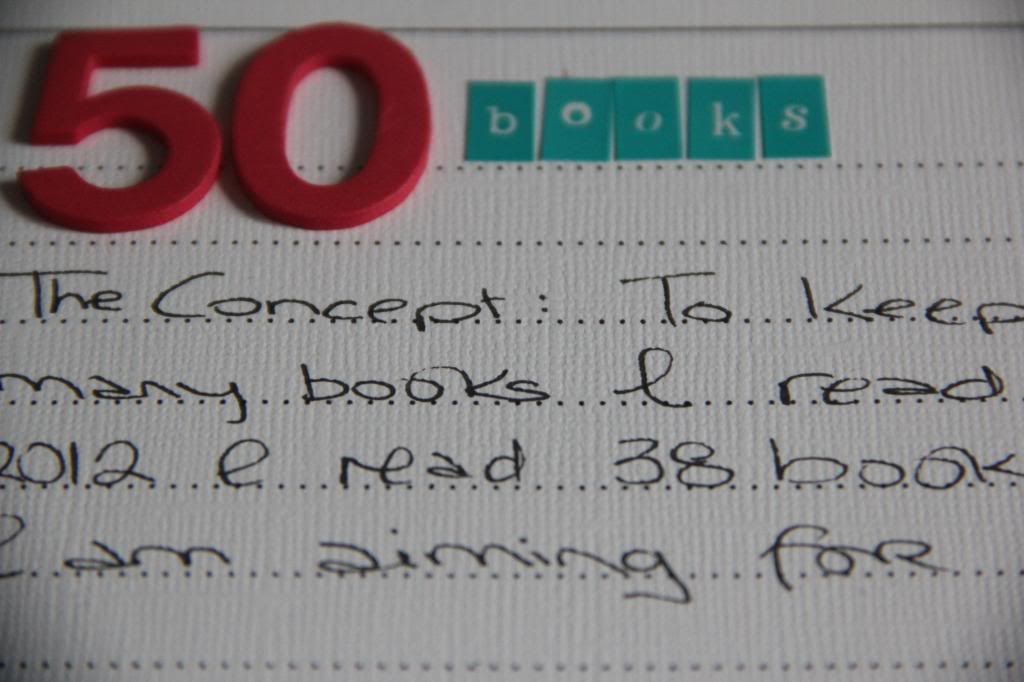 50 books
The Concept: To Keep
many books I read
2012 I read 38 book
I am aiming for